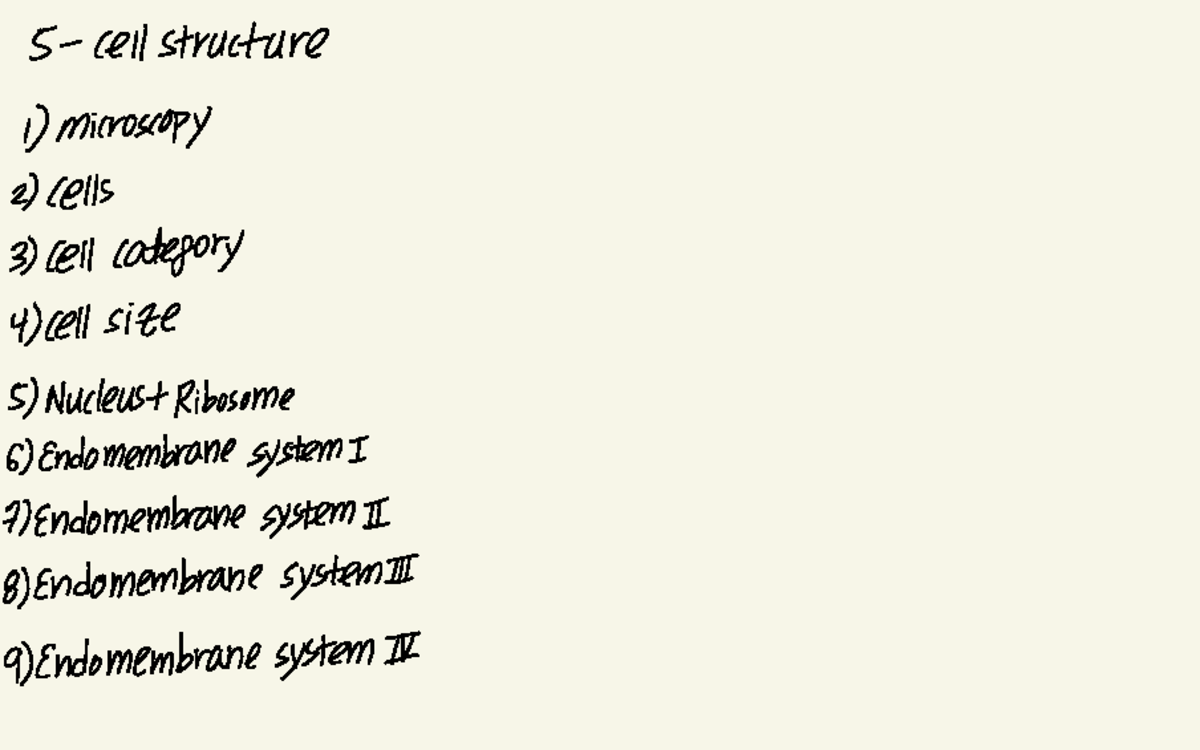 5- cell structure
1) microscopy
2) cells
3) cell category
4) cell size
5) Nucleus + Ribosome
6) Endomembrane system I
7) Endomembrane system II
8) Endomembrane system III
9) Endomembrane system IV